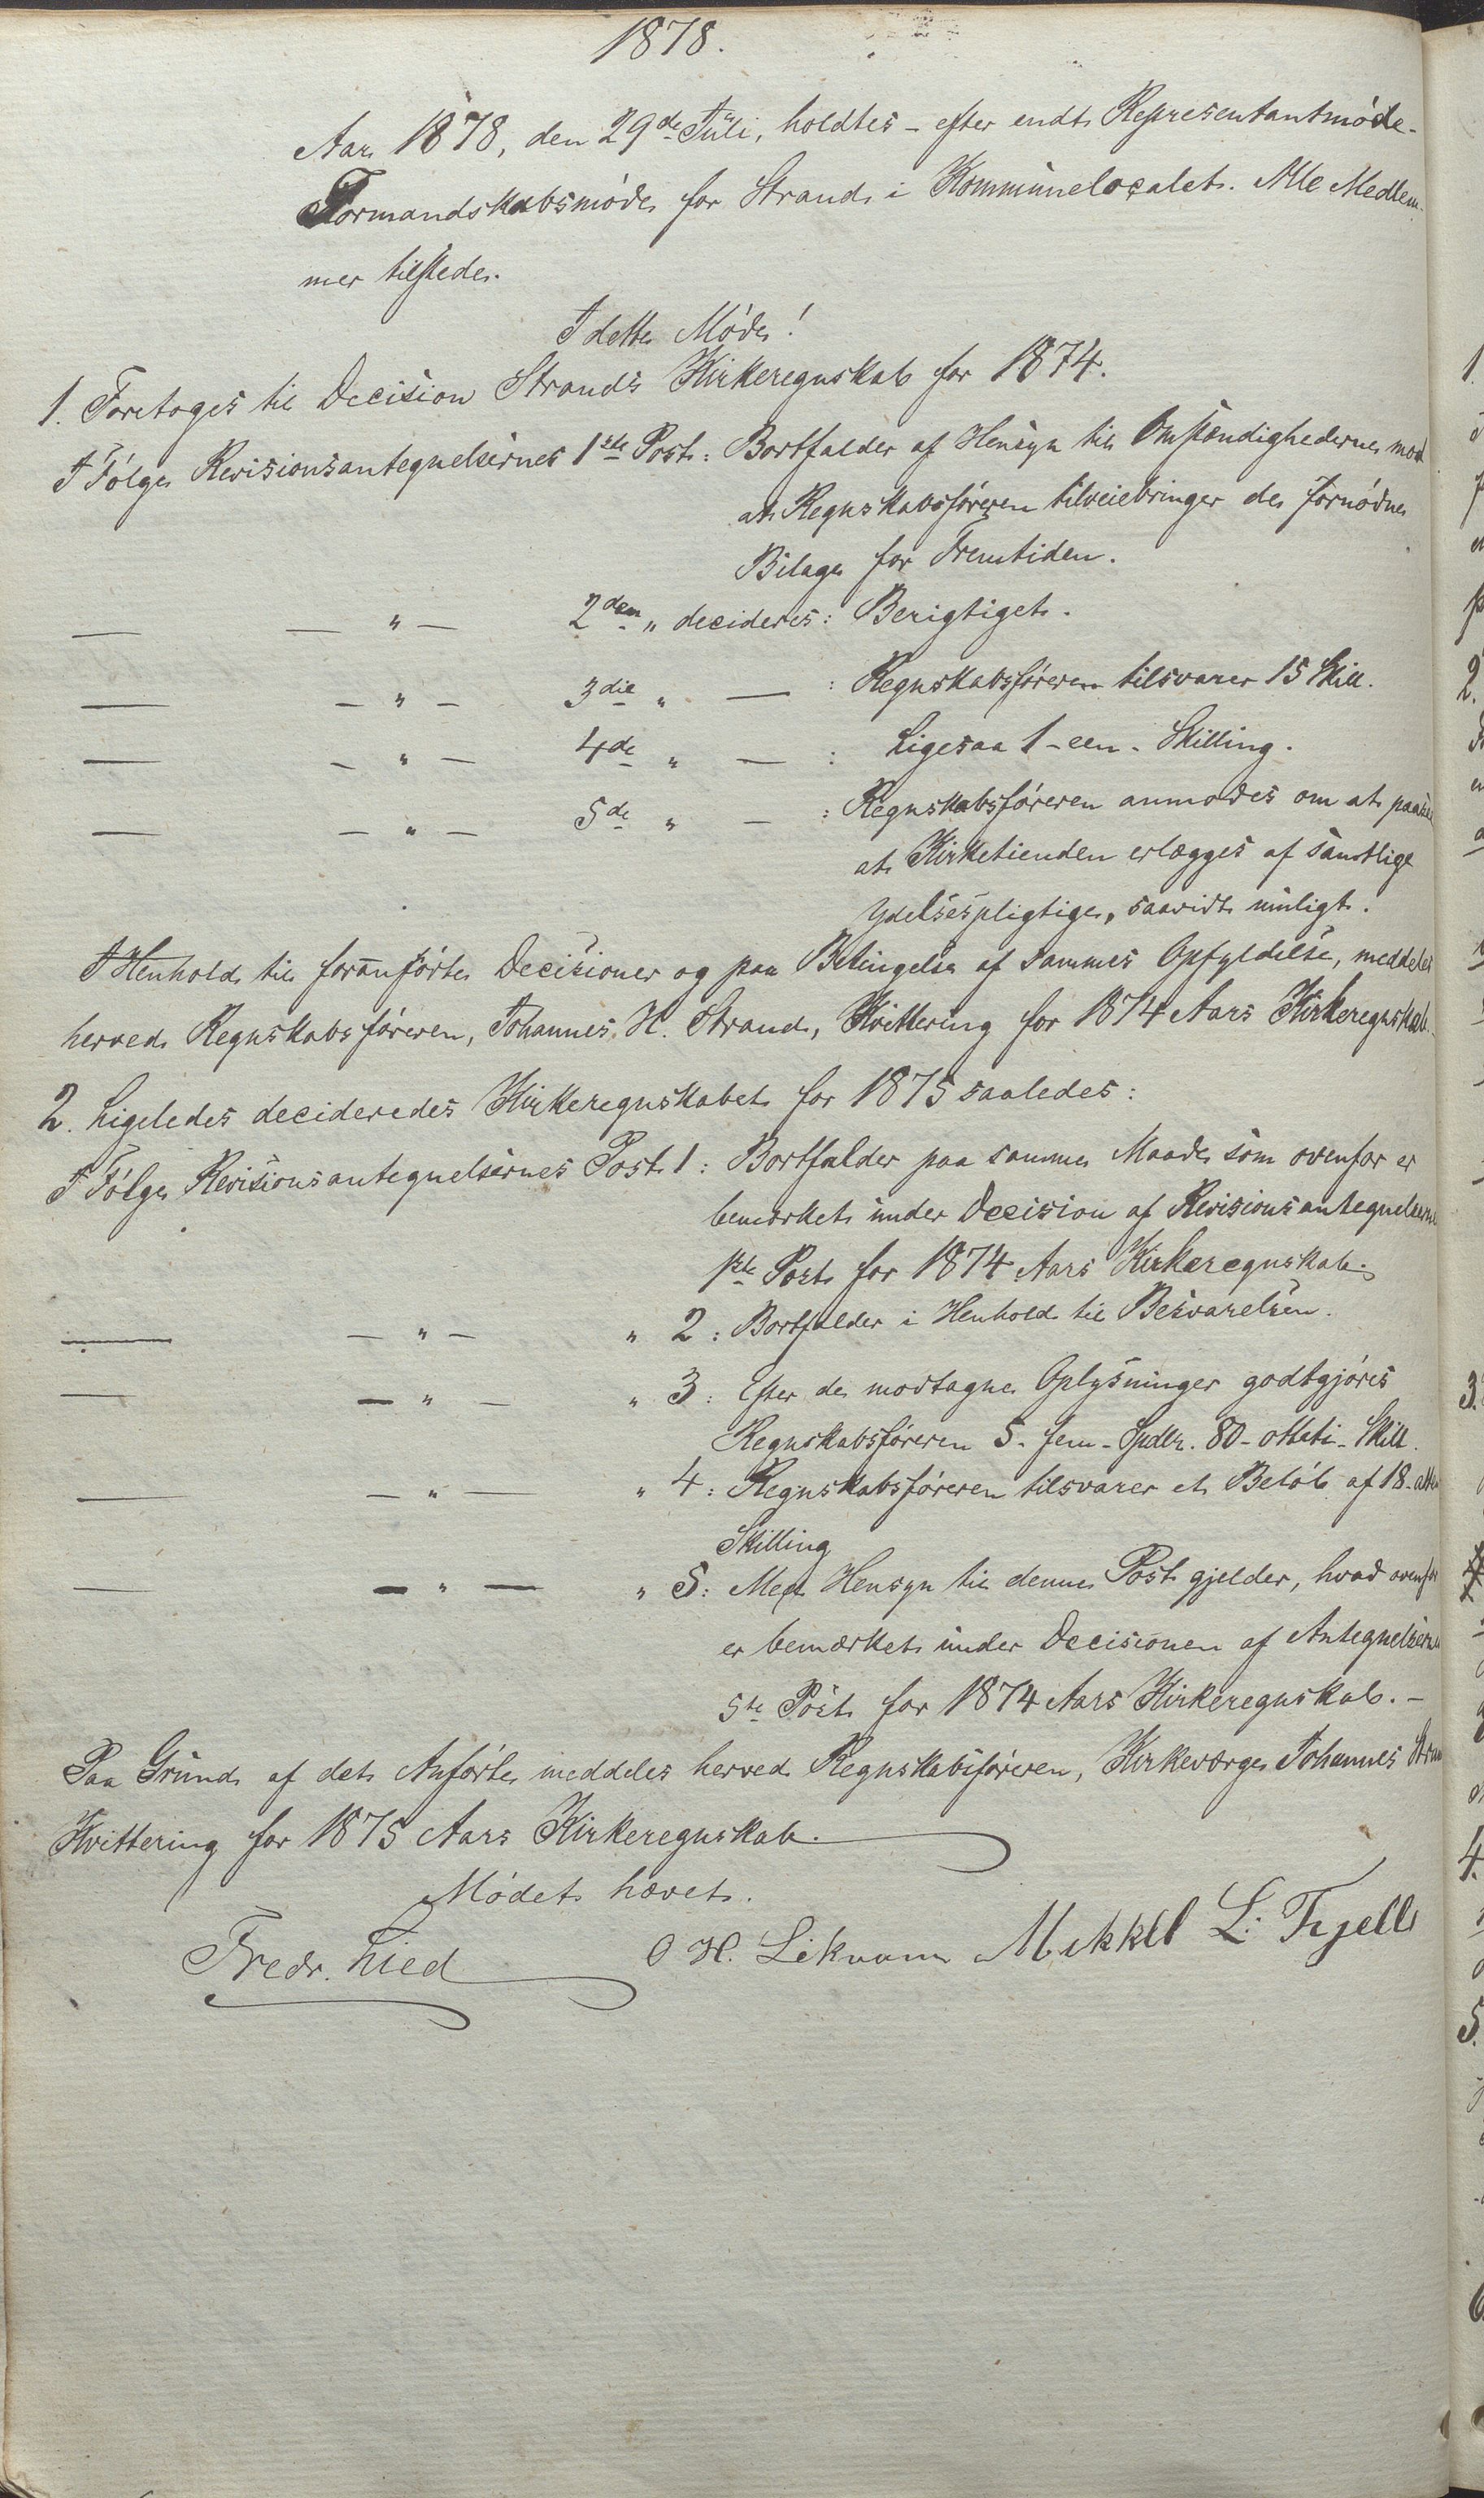 1878.
Aar 1878, den 29de Juli, holdtes - efter endt Representantmøde -
Formandskabsmøde for Strand i Kommunelocalet. Alle Medlem-
mer tilstede.
I dette Møde!
1. Foretoges til Decision Strands Kirkeregnskab for 1874.
I Følge Revisionsantegnelsernes 1ste Post: Bortfalder af Hensyn til Omstændighederne, mod
at Regnskabsføreren tilveiebringer de fornødne
Bilage for Fremtiden.
— — " — 2den " decideres: Berigtiget.
— — " — 3die " — : Regnskabsføreren tilsvarer 15 Skill.
— — " — 4de " — : Ligesaa 1 - een - Skilling.
— — " — 5de " — : Regnskabsføreren anmodes om at paase
at Kirketienden erlægges af samtlige
Ydelsespligtige, saavidt muligt.
I Henhold til foranførte Decisioner og paa Betingelse af sammes Opfyldelse, meddeles
herved Regnskabsføreren, Johannes H. Strand, Kvittering for 1874 Aars Kirkeregnskab.
2. Ligeledes decideredes Kirkeregnskabet for 1875 saaledes:
I Følge Revisionsantegnelsernes Post 1: Bortfalder paa samme Maade som ovenfor er
bemærket under Decision af Revisionsantegnelserne
1ste Post for 1874 Aars Kirkeregnskab.
— — " — " 2: Bortfalder i Henhold til Besvarelsen.
— — " — " 3: Efter de modtagne Oplysninger godtgjøres
Regnskabsføreren 5 - fem - Spdlr. 80 - otteti - Skill.
— — " — " 4: Regnskabsføreren tilsvarer et Beløb af 18 - atten
Skilling
— — " — " 5: Med Hensyn til denne Post gjelder, hvad ovenfor
er bemærket under Decisionen af Antegnelsernes
5te Post for 1874 Aars Kirkeregnskab. -
Paa Grund af det Anførte meddeles herved Regnskabsføreren, Kirkeværge Johannes Strand
Kvittering for 1875 Aars Kirkeregnskab.
Mødet hævet.
Fredr. Lied O H. Lekvam Mikkel L. Fjelle